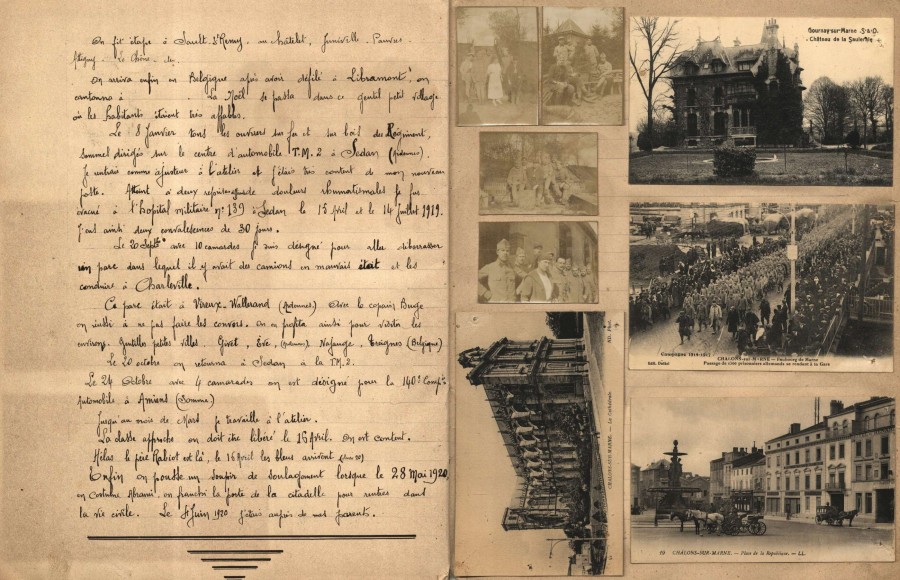 On fit étape à Sault-St Remy, au Châtelet, Juniville, Pauvres
Attigny, Le Chêne
On arriva enfin en Belgique après avoir défilé à Libramont on
cantonna à La Noël se passa dans ce gentil petit village
où les habitants étaient très affables.
Le 8 Janvier tous les ouvriers sur fer et sur bois du Régiment,
sommes dirigés sur le centre d'automobile T.M. 2 à Sedan (Ardennes).
Je comme ajusteur à l'atelier et j'étais très content de mon nouveau
poste. Atteint à deux reprises de douleurs rhumatismales je fus
évacué à l'hôpital militaire N° 139 à Sedan le 15 Avril et le 14 Juillet 1919.
J'eus ainsi deux convalescences de 30 jours.
Le 20 Septbre avec 10 camarades je suis désigné pour aller débarrasser
un parc dans lequel il y avait des camions en mauvais état et les
conduire à Charleville.
Ce parc était à Vireux-Wallerand (Ardennes) Avec le copain Buge
on à ne pas faire les convois. On en profita ainsi pour visiter les
environs. Gentilles petites villes: Givet, Treignes (Belgique)
Le 20 octobre on retourna à Sedan à la T.M.2.
Le 24 Octobre avec 4 camarades on est désigné pour la 140e Compie
Automobile à Amiens (Somme)
Jusqu'au mois de Mars je travaille à l'atelier.
La classe approche on doit être libéré le 16 Avril. On est content.
Hélas le père Rabiot est là, le 16 Avril les bleus arrivent (classe 20)
Enfin on pousse un soupir de soulagement lorsque le 28 Mai 1920,
en costume Abrami, on franchi la porte de la citadelle pour rentrer dans
la vie civile. Le Juin 1920 j'étais auprès de mes parents.
Gournay-sur-Marne (S.&O.)
Château de la
Campagne 1914-1917
CHALONS-sur-MARNE - Faubourg de Marne
Passage de prisonniers allemands se rendant à la Gare
CHALONS-SUR-MARNE. — La Cathédrale
ND. Phot.
69 CHÂLONS-SUR-MARNE. — Place de la République. — LL.